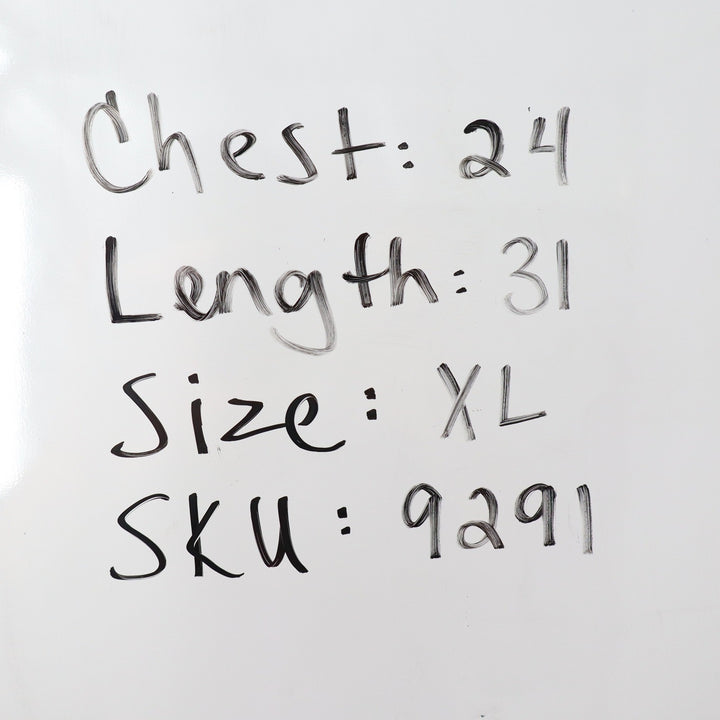 Chest: 24
Length: 31
Size: XL
SKU: 9291